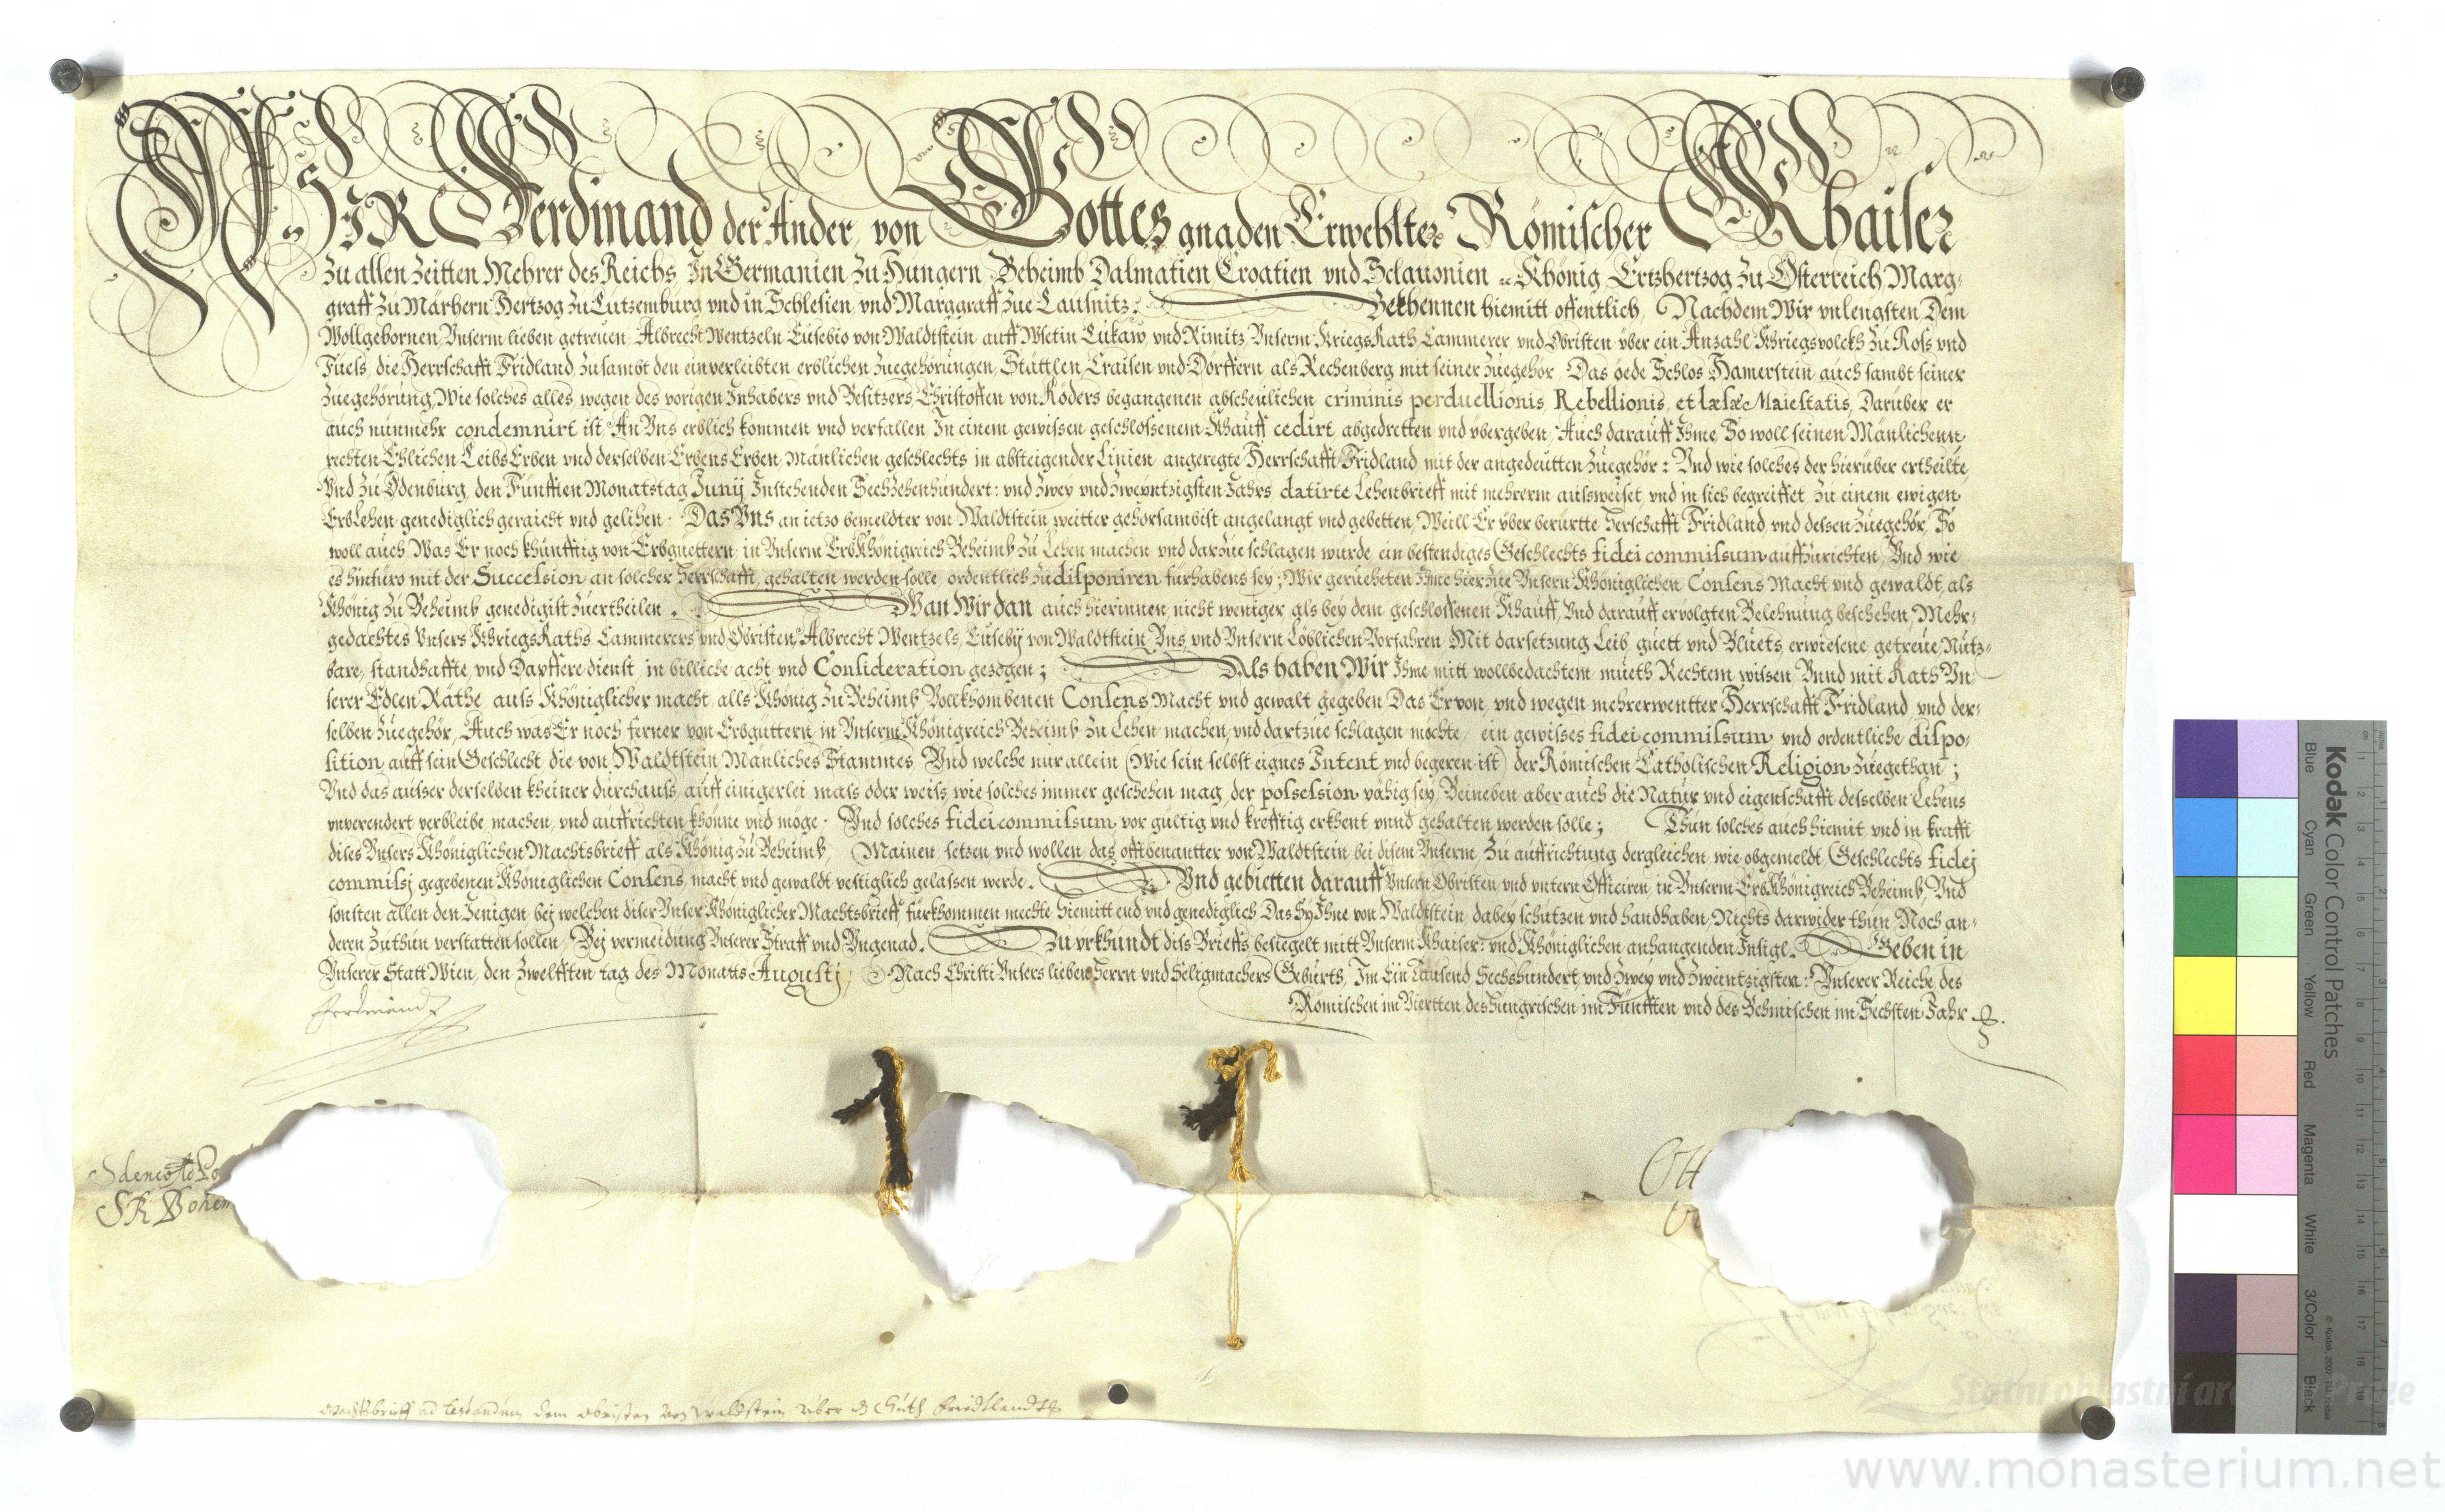 WIR Ferdinand der Ander, von Gottes gnaden Erwehlter Römischer Khaiser
Zu allen Zeitten Mehrer des Reichs, In Germanien zu Hungern Beheimb Dalmatien Croatien vnd Sclauonien ꝛc Khönig Ertzhertzog zu Österreich Marg-
graff zu Marhern Hertzog zu Lutzemburg vnd in Schlesien vnd Marggraff zue Lausnitz. Bekhennen hiemitt offentlich, Nachdem Wir vnlengsten Dem
Wollgebornen Vnserm lieben getreuen Albrecht Wentzeln Eusebio von Waldtstein auff Wsetin Lukaw vnd Rimitz Vnserm KriegsRath Cammerer vnd Obristen vber ein Anzahl Khriegsvolckh zu Ross vnd
Fuess, die Herrschafft Fridland zusambt den einverleibten erblichen Zuegehörungen, Stättlen, Craisen vnd Dörffern als Rechenberg mit seiner Zuegehör, Das öede Schlos Hamerstein auch sambt seiner
Zuegehörung, Wie solches alles wegen des vorigen Inhabers vnd Besitzers Christoffen von Röders begangenen abscheulichen criminis perduellionis, Rebellionis, et læsæ Maiestatis, Darüber er
auch nunmehr condemnirt ist, An Vns erblich kommen vnd verfallen In einem gewissen geschlossenem Khauff cedirt abgedretten vnd vbergeben, Auch darauff Ihme, So woll seinen Mänlichenn
rechten Ehlichen Leibs Erben vnd derselben Erbens Erben Mänlichen geschlechts in absteigender Linien angeregte Herrschafft Fridland mit der angedeutten Zuegehör: Vnd wie solches der hierüber ertheilte
Vnd zu Ödenburg den Funfften Monatstag Junij Instehenden Sechzehenhundert: vnd zwey vnd zweyntzigsten Jahrs datirte Lehenbrieff mit mehrerm aufsweiset, vnd in sich begreiffet zu einem ewigen
ErbLehen genediglich geraicht vnd gelihen. Das Vns an ietzo bemeldter von Waldtstein weitter gehorsambist angelangt vnd gebetten, Weill Er vber berürtte Herschafft Fridland vnd dessen Zuegehör, So
woll auch Was Er noch khünfftig von Erbguettern in Vnserm ErbKhönigreich Beheimb zu Lehen machen vnd darzue schlagen wurde, ein bestendiges Geschlechts fidei commissum auffzurichten, Vnd wie
es hinfüro mit der Succession an solcher Herrschafft gehalten werden solle ordentlich zu disponiren fürhabens sey; Wir gerueheten Ihme hierzue Vnsern Khöniglichen Consens Macht vnd gewaldt als
Khönig zu Beheimb genedigist zuertheilen. Wan Wir dan auch hierinnen nicht weniger, als bey dem geschlossenen Khauff, Vnd darauff ervolgten Belehnung beschehen, Mehr-
gedachtes Vnsers KhriegsRaths Cammerers vnd Obristen Albrecht Wentzels Eusebij von Waldtstein Vns vnd Vnsern Löblichen Vorfahren Mit darsetzung Leib guett vnd Bluets erwiesene getreue, Nutz-
bare, standhaffte, vnd Dapffere dienst in billiche acht vnd Consideration gezogen; Als haben Wir Ihme mitt wollbedachtem mueth Rechtem wissen Vnnd mit Rath Vn-
serer Edlen Räthe auss Khöniglicher macht alls Khönig zu Beheimb Vollkhombenen Consens Macht vnd gewalt gegeben Das Er von vnd wegen mehrerwentter Herrschafft Fridland vnd der-
selben Zuegehör, Auch was Er noch ferner von Erbgüttern in Vnserm Khönigreich Beheimb zu Lehen machen, vnd dartzue schlagen möchte, ein gewisses fidei commissum vnd ordentliche dispo-
sition auff sein Geschlecht die von Waldtstein Mänliches Stammes Vnd welche nur allein (Wie sein selbst eignes Intent vnd begeren ist) der Römischen Catholischen Religion zuegethan;
Vnd das ausser derselben kheiner durchauss auff einigerlei mass oder weiss, wie solches immer geschehen mag, der possession vähig sey, Beineben aber auch die Natur vnd eigenschafft desselben Lehens
vnverendert verbleibe, machen, vnd auffrichten khönne vnd möge. Vnd solches fidei commissum vor gültig vnd krefftig erkhent vnnd gehalten werden solle; Thun solches auch hiemit, vnd in krafft
dises Vnsers Khöniglichen Machtsbrieff als Khönig zu Beheimb, Mainen, setzen, vnd wollen das offtbenantter von Waldtstein bei disem Vnserm, Zu auffrichtung dergleichen, wie obgemeldt, Geschlechts fidej
commissj gegebenen Khöniglichen Consens, macht vnd gewaldt vestiglich gelassen werde. Vnd gebietten darauff Vnsern Obristen vnd vntern Officiren in Vnserm ErbKhönigreich Beheimb, Vnd
sonsten allen den Jenigen, bej welchen diser Vnser Khöniglicher Machtsbrieff fürkhommen mechte, hiemitt end vnd genediglich Das Sy Ihne von Waldtstein, dabey schützen vnd handhaben, Nichts darwider thun, Noch an-
deren zuthun verstatten sollen, Bej vermeidung Vnserer Straff vnd Vngenad. Zu vrkhundt diss Brieffs besiegelt mitt Vnserm Khaiser: vnd Khöniglichen anhangenden Insigl. Geben in
Vnserer Statt Wien, den zwelfften tag des Monatts Augustj, Nach Christi Vnsers lieben Herrn vnd Seligmachers Geburth, Im Ein Tausend Sechshundert, vnd zwey vnd zweintzigsten: Vnserer Reiche, des
Römischen im Viertten, des Hungrischen im Fünfften vnd des Behmischen im Sechsten Jahr
Ferdinand
Sdenco Ad Po
S R Bohem
Ott
Machtsbrieff ad testandum dem Obristen von Waldstein über d Guth Friedtlandt
Kodak Color Control Patches
Blue Cyan Green Yellow Red Magenta White 3/Color Black
© Kodak, 2007
Státní oblastní archiv Praze
www.monasterium.net